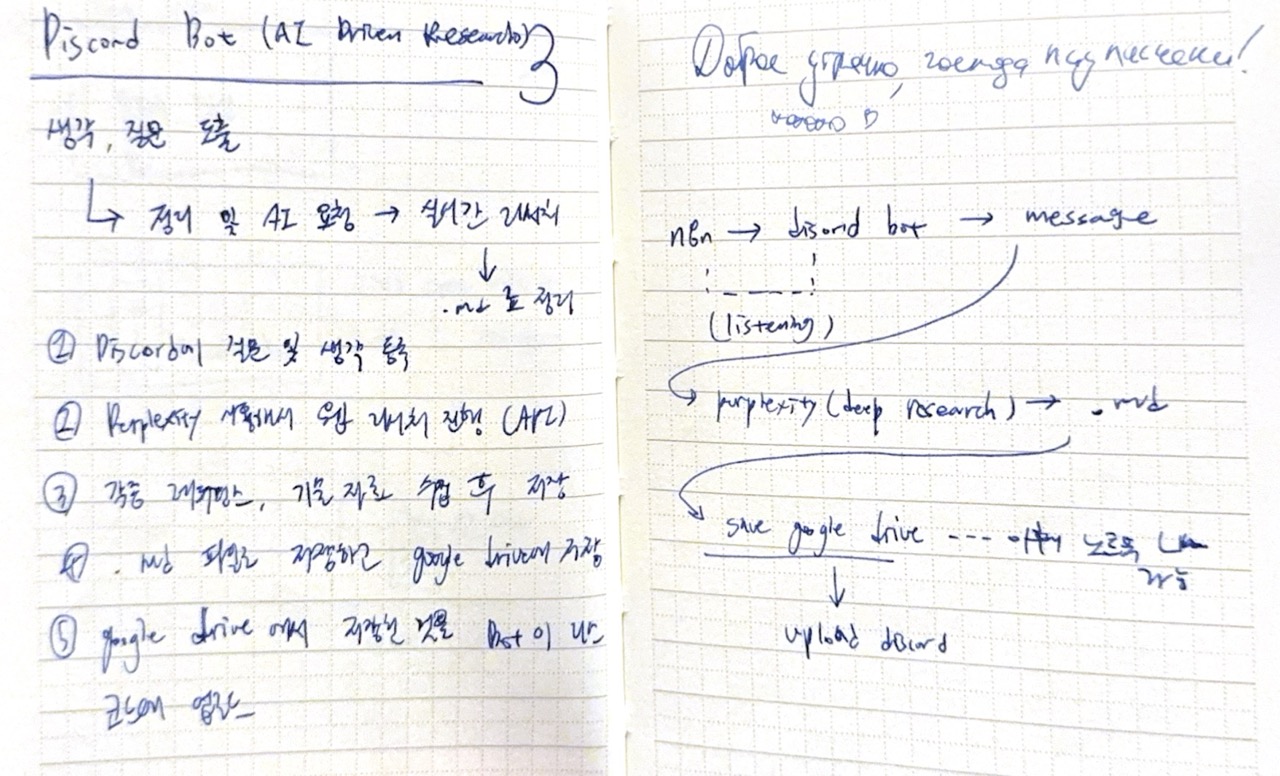 Discord Bot (AI Driven Research)
생각, 질문 도출
↳ 정리 및 AI 요청 → 실시간 리서치
↓
.md 로 정리
① Discord에 질문 및 생각 등록
② Perplexity 사용해서 웹 리서치 진행 (API)
③ 각종 레퍼런스, 기물 자료 수집 후 저장
④ .md 파일로 저장하고 google drive에 저장
⑤ google drive에서 저장된 것을 Bot이 디스
코드에 업로드
Доброе утречко, господа
n8n → disord bot → message
(listening)
perplexity (deep research) → .md
save google drive ---- 노르톡
가능
↓
upload discord